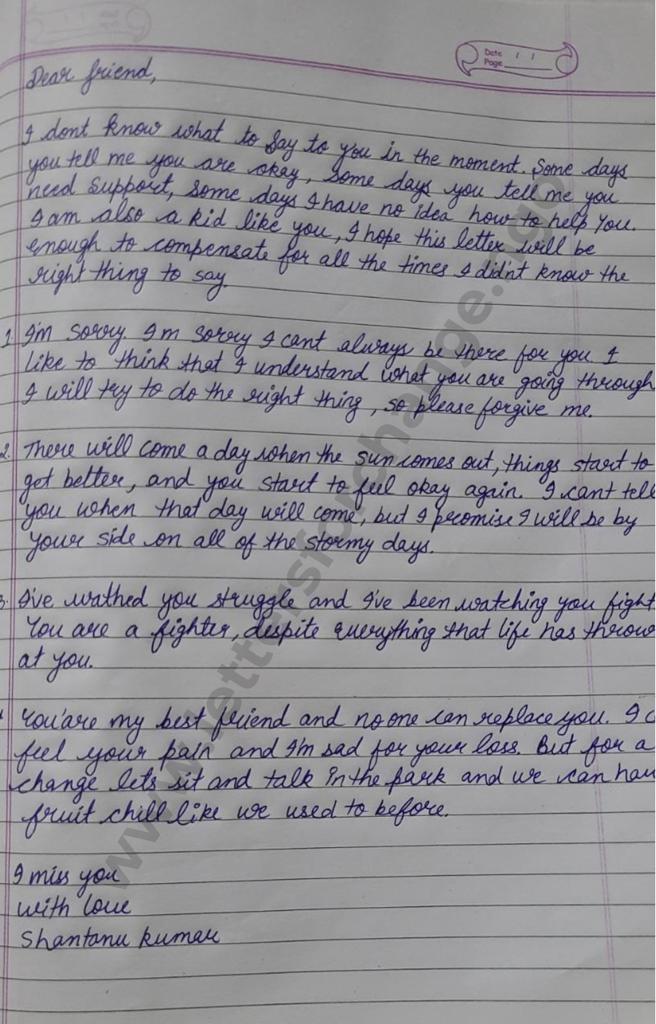 Date / /
Page
Dear friend,
I dont know what to say to you in the moment. Some days
you tell me you are okay, some days you tell me you
need support, some days I have no idea how to help you.
I am also a kid like you, I hope this letter will be
enough to compensate for all the times I didn't know the
right thing to say.
1. I'm sorry I m sorry I cant always be there for you I
like to think that I understand what you are going through
I will try to do the right thing, so please forgive me.
2. There will come a day when the sun comes out, things start to
get better, and you start to feel okay again. I cant tell
you when that day will come, but I promise I will be by
your side on all of the stormy days.
3. I've wathed you struggle and I've been watching you fight
You are a fighter, despite everything that life has throw
at you.
You'are my best friend and no one can replace you. I c
feel your pain and I'm sad for your loss. But for a
change lets sit and talk in the park and we can hav
fruit chill like we used to before.
I miss you
with love
Shantanu kumar
www.lettersforchange.ngo